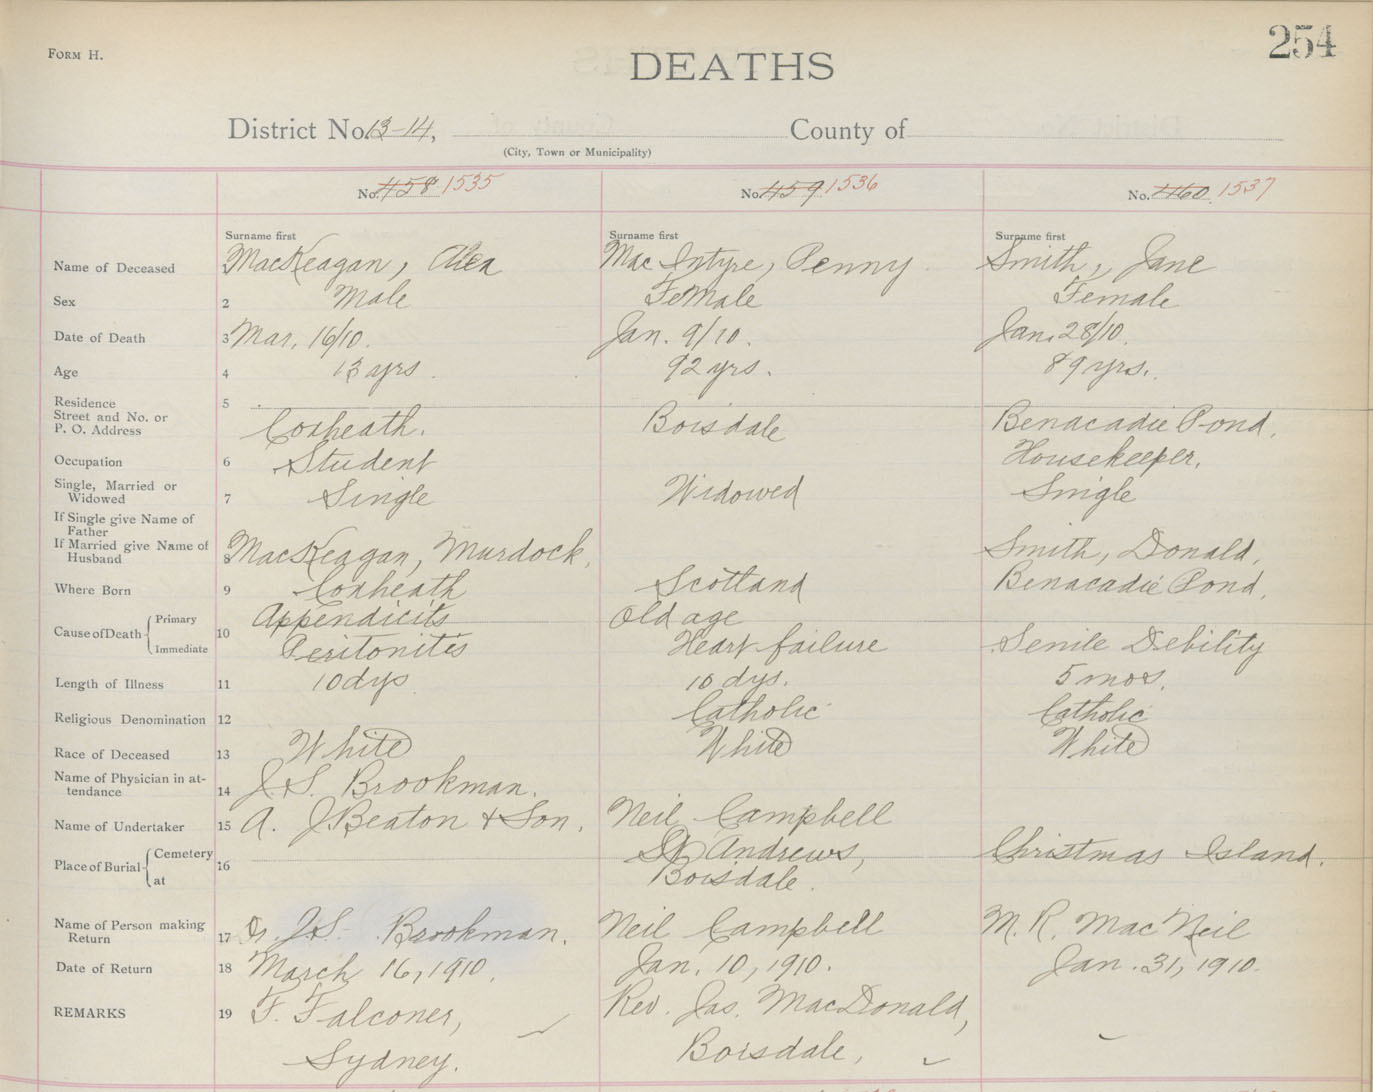 Form H.
254
DEATHS
District No. 13-14, County of
(City, Town or Municipality)
No. 458 1535 No. 459 1536 No. 460 1537
Surname first Surname first Surname first
Name of Deceased MacKeagan, Mac Intyre, Penny Smith, Jane
Sex 2 Male FeMale Female
Date of Death 3 Mar. 16/10. Jan. 9/10. Jan. 28/10.
Age 4 13 yrs. 92 yrs. 89 yrs.
Residence 5
Street and No. or
P. O. Address Coxheath. Boisdale Benacadie Pond.
Occupation 6 Student Housekeeper.
Single, Married or
Widowed 7 Single Widowed Single
If Single give Name of
Father
If Married give Name of
Husband 8 MacKeagan, Murdock. Smith, Donald.
Where Born 9 Coxheath Scotland Benacadie Pond.
Cause of Death Primary 10 Appendicits Old age
Immediate Peritonitis Heart failure Senile Debility
Length of Illness 11 10 dys 10 dys. 5 mos.
Religious Denomination 12 Catholic Catholic
Race of Deceased 13 White White White
Name of Physician in at-
tendance 14 J. S. Brookman.
Name of Undertaker 15 A. J Beaton & Son. Neil Campbell
Place of Burial Cemetery 16 St Andrews, Christmas Island.
at Boisdale.
Name of Person making
Return 17 Dr. J.S. Brookman. Neil Campbell M. R. MacNeil
Date of Return 18 March 16, 1910. Jan. 10, 1910. Jan. 31, 1910.
REMARKS 19 F. Falconer, Rev. Jas. MacDonald,
Sydney. Boisdale,